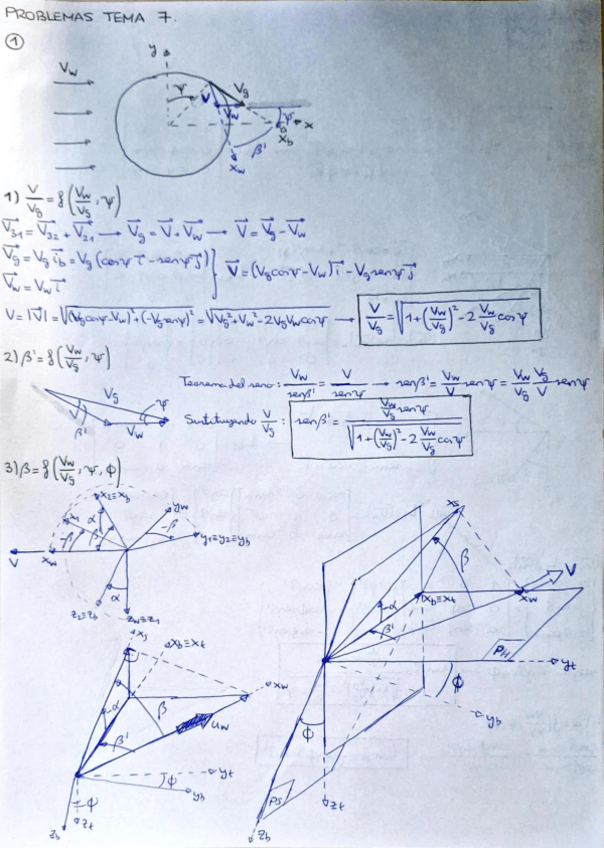 PROBLEMAS TEMA 7.
①
y
V_w
ψ
V_g
V
V_w
ψ
x
x_b
β'
x_w
1) V/V_g = f(V_w/V_g, ψ)
V⃗_31 = V⃗_32 + V⃗_21 → V⃗_g = V⃗ + V⃗_w → V⃗ = V⃗_g - V⃗_w
V⃗_g = V_g i⃗_b = V_g (cosψ i⃗ - senψ j⃗) } V⃗ = (V_g cosψ - V_w) i⃗ - V_g senψ j⃗
V⃗_w = V_w i⃗
V = |V⃗| = √((V_g cosψ - V_w)² + (-V_g senψ)²) = √(V_g² + V_w² - 2V_g V_w cosψ) → V/V_g = √(1 + (V_w/V_g)² - 2 V_w/V_g cosψ)
2) β' = f(V_w/V_g, ψ)
Teorema del seno: V_w/senβ' = V/senψ → senβ' = V_w/V senψ = V_w/V_g V_g/V senψ
V_g
V
ψ
β'
V_w
Sustituyendo V/V_g: senβ' = (V_w/V_g senψ)/√(1 + (V_w/V_g)² - 2 V_w/V_g cosψ)
3) β = f(V_w/V_g, ψ, ϕ)
x_2≡x_b
y_w
x_1
α
-β
-β
β
y_1≡y_2≡y_b
V
x_w
α
z_2≡z_b
z_w≡z_1
x_s
x_b≡x_t
x_w
-α
β
β'
u_w
y_t
ϕ
y_b
ϕ
z_t
z_b
x_s
β
V
-α
x_b≡x_t
x_w
β'
PH
y_t
ϕ
y_b
ϕ
PS
z_t
z_b